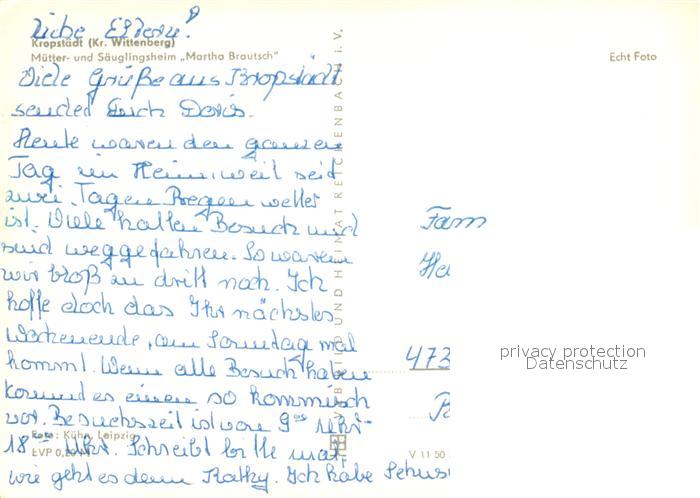 Liebe Eltern!
Kropstädt (Kr. Wittenberg)
Mütter- und Säuglingsheim „Martha Brautsch"
Echt Foto
Viele Grüße aus Kropstädt
sendet Euch Doris.
Heute waren den ganzen
Tag im Heim, weil seit
zwei Tagen Regenwetter
ist. Viele hatten Besuch und
sind weggefahren. So waren
wir bloß zu dritt noch. Ich
hoffe doch das Ihr nächstes
Wochenende, am Sonntag mal
kommt. Wenn alle Besuch haben
kommt es einen so kommisch
vor. Besuchszeit ist von 9 Uhr-
18 Uhr. Schreibt bitte mal,
wie geht es denn Kathy. Ich habe Sehns
Foto: Kühn, Leipzig
EVP 0,20 M
V 11 50
VERLAG BILD UND HEIMAT REICHENBACH i. V.
Fam
He
473
privacy protection
Datenschutz